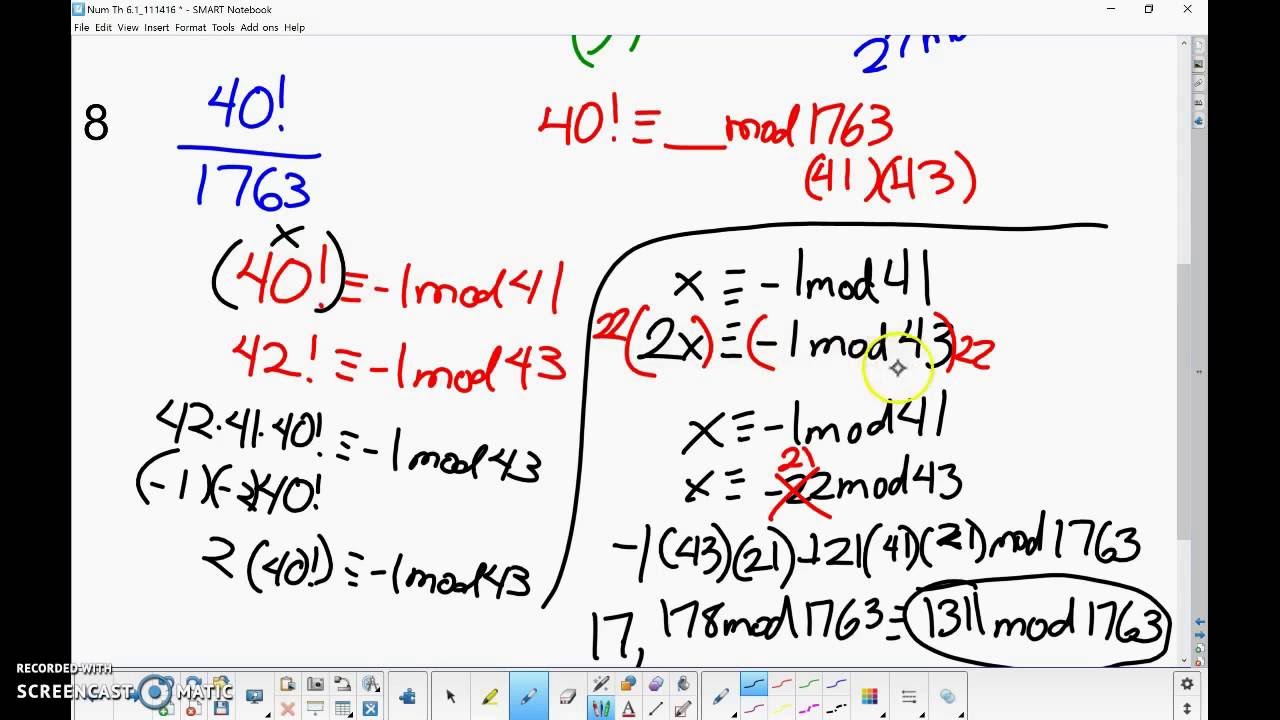 Num Th 6.1_111416 * - SMART Notebook
File Edit View Insert Format Tools Add ons Help
8
40!
1763
40! ≡ __ mod 1763
(41)(43)
x
(40!) ≡ -1 mod 41
42! ≡ -1 mod 43
42·41·40! ≡ -1 mod 43
(-1)(-2)40!
2(40!) ≡ -1 mod 43
x ≡ -1 mod 41
22(2x) ≡ (-1 mod 43)22
x ≡ -1 mod 41
21
x ≡ -22 mod 43
-1(43)(21)+21(41)(21) mod 1763
17,178 mod 1763 ≡ 1311 mod 1763
RECORDED WITH
SCREENCAST MATIC